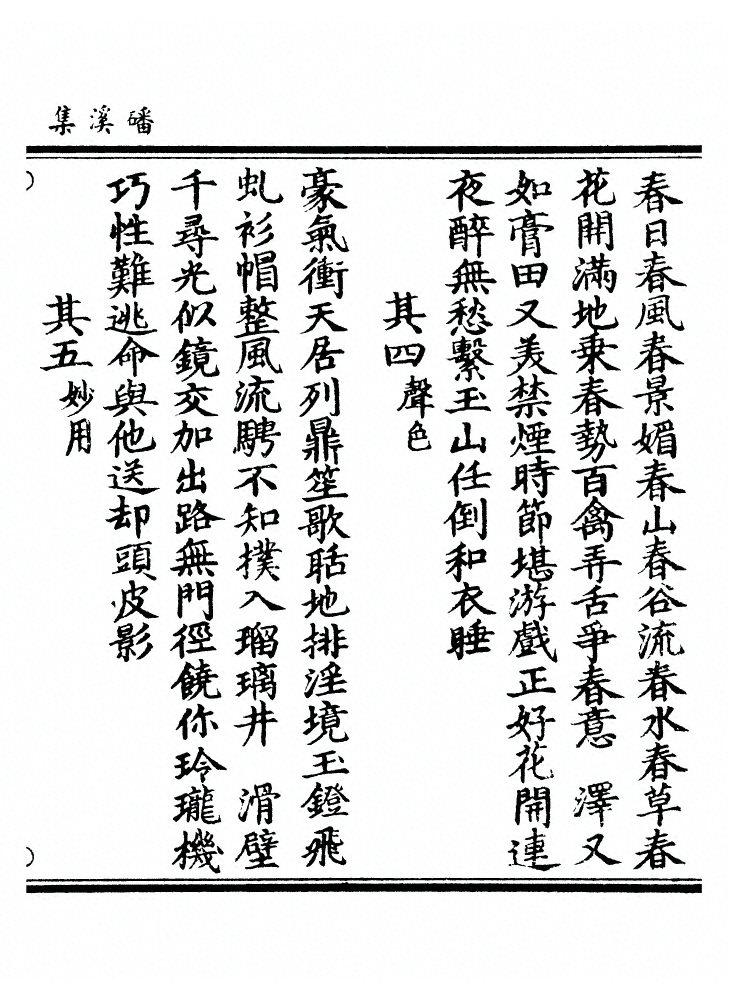 磻溪集
春日春風春景媚春山春谷流春水春草春
花開滿地乘春勢百禽弄舌爭春意　澤又
如膏田又美禁煙時節堪游戲正好花開連
夜醉無愁繫玉山任倒和衣睡
其四聲色
豪氣衝天居列鼎笙歌聒地排淫境玉鐙飛
虬衫帽整風流騁不知撲入瑠璃井　滑壁
千尋光似鏡交加出路無門徑饒你玲瓏機
巧性難逃命與他送却頭皮影
其五妙用